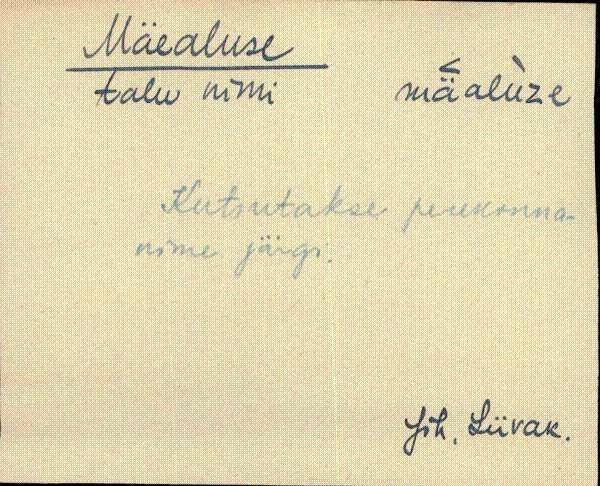 Mäealuse
talu nimi mäaluze
Kutsutakse perekonna-
nime järgi.
Joh. Liivak.